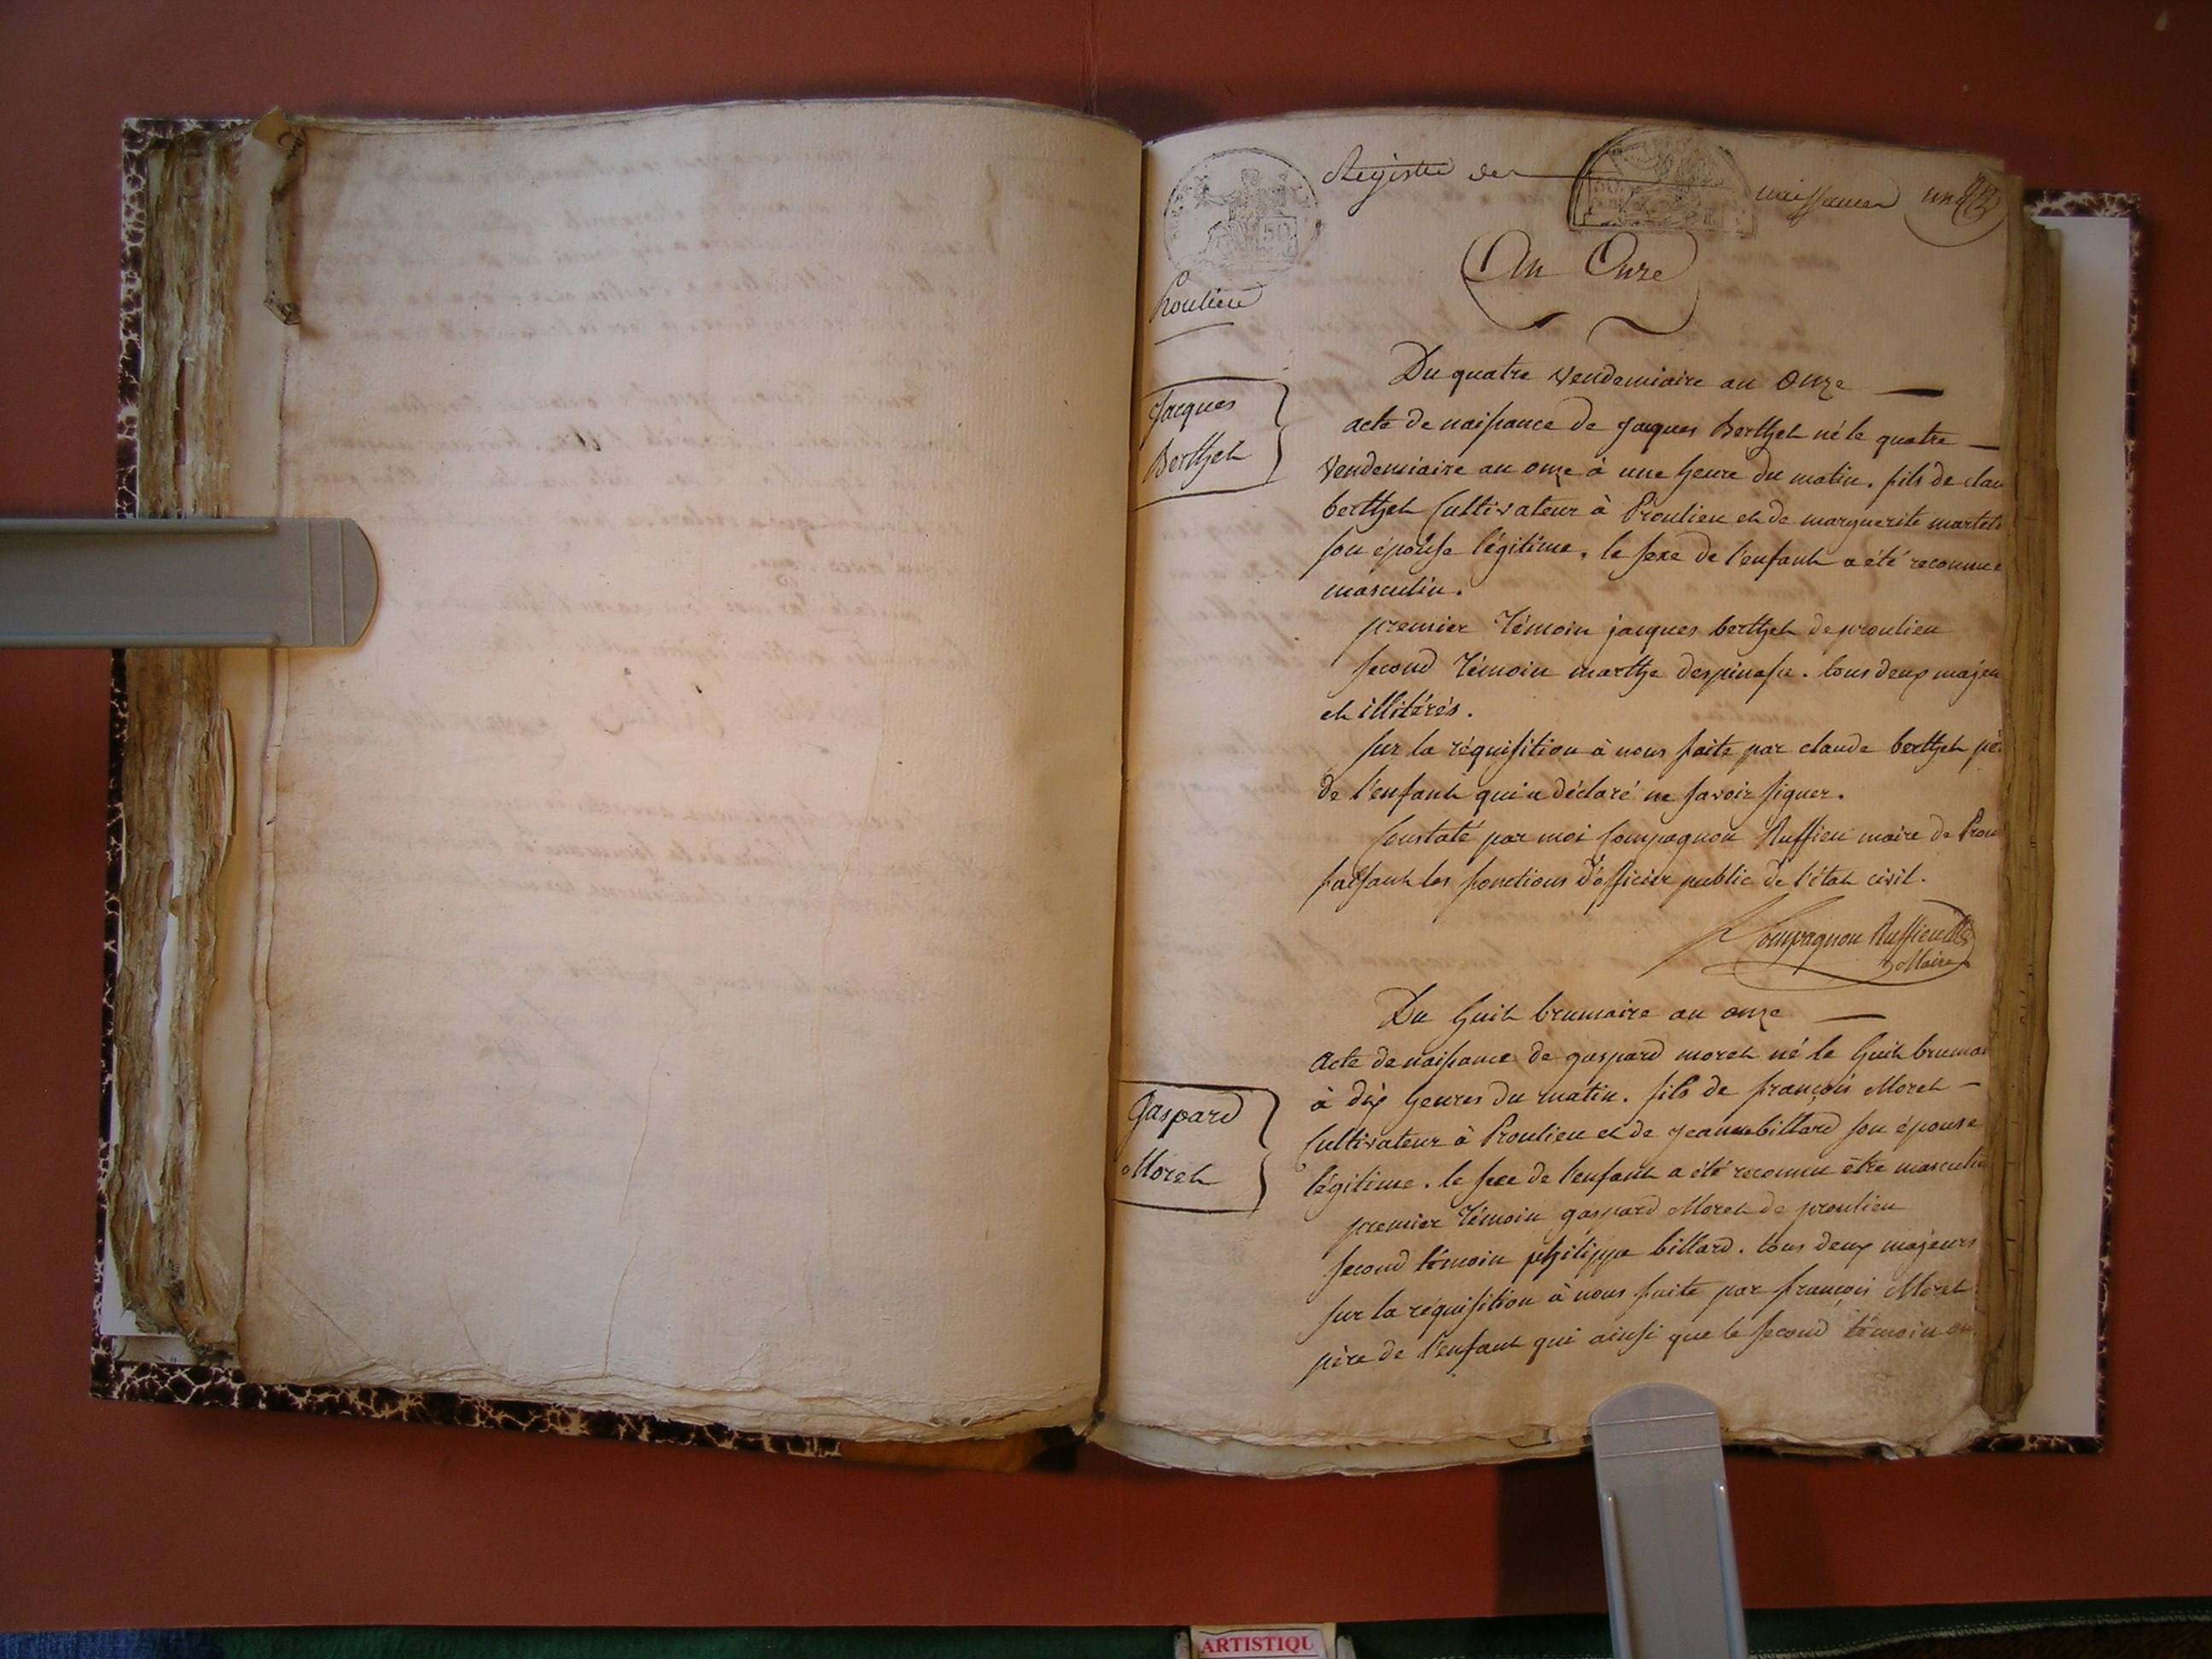 Registre des naissances
An Onze
Proulieu
Du quatre Vendemiaire an Onze
Jacques
Berthet
acte de naissance de Jacques Berthet né le quatre
Vendemiaire an onze à une heure du matin. fils de clau
berthet Cultivateur à Proulieu et de marguerite martet
son épouse légitime, le sexe de l'enfant a été reconnu
masculin.
premier témoin jacques berthet de proulieu
second témoin marthe despinasse. tous deux majeu
et illitérés.
sur la réquisition à nous faite par claude berthet pè
de l'enfant qui a déclaré ne savoir signer.
Constaté par moi Compagnon Ruffieu maire de Prou
faisant les fonctions d'officier public de l'état civil.
Compagnon Ruffieu
Maire
Du huit brumaire an onze
Gaspard
Moret
Acte de naissance de gaspard moret né le huit bruma
à dix heures du matin. fils de françois Moret
Cultivateur à Proulieu et de jeanne billard son épouse
légitime. le sexe de l'enfant a été reconnu être masculin
premier témoin gaspard Moret de proulieu
second témoin philippe billard. tous deux majeurs
sur la réquisition à nous faite par françois Moret
père de l'enfant qui ainsi que le second témoin on
ARTISTIQU